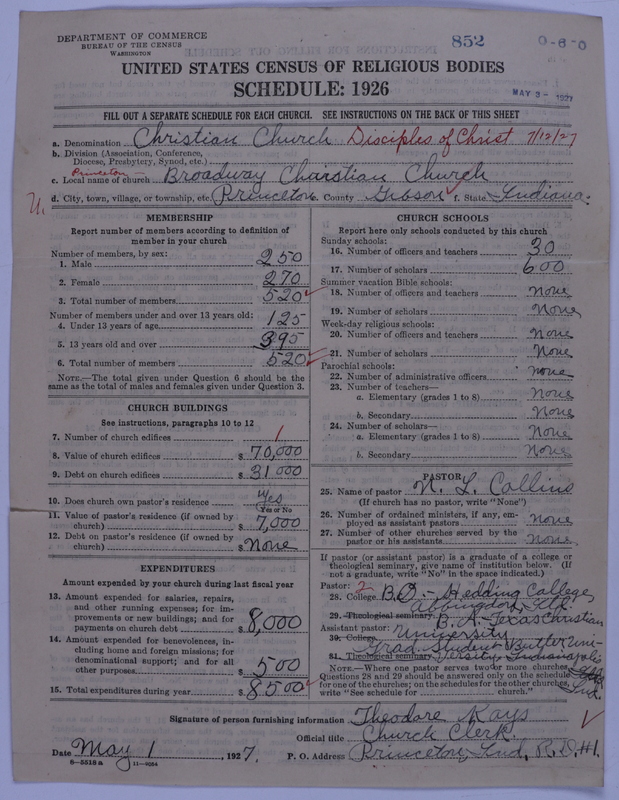 DEPARTMENT OF COMMERCE
BUREAU OF THE CENSUS
WASHINGTON
852
0-6-0
UNITED STATES CENSUS OF RELIGIOUS BODIES
SCHEDULE: 1926
MAY 3- 1927
FILL OUT A SEPARATE SCHEDULE FOR EACH CHURCH. SEE INSTRUCTIONS ON THE BACK OF THIS SHEET
a. Denomination Christian Church Disciples of Christ 7/12/27
b. Division (Association, Conference,
Diocese, Presbytery, Synod, etc.)
Princeton -
c. Local name of church Broadway Christian Church
d. City, town, village, or township, etc. Princeton e. County Gibson f. State Indiana.
U.
MEMBERSHIP
Report number of members according to definition of
member in your church
Number of members, by sex:
1. Male 250
2. Female 270
3. Total number of members 520
Number of members under and over 13 years old:
4. Under 13 years of age 125
5. 13 years old and over 395
6. Total number of members 520
NOTE.—The total given under Question 6 should be the
same as the total of males and females given under Question 3.
CHURCH BUILDINGS
See instructions, paragraphs 10 to 12
7. Number of church edifices 1
8. Value of church edifices $ 70,000
9. Debt on church edifices $ 31 000
10. Does church own pastor's residence Yes
Yes or No
11. Value of pastor's residence (if owned by
church) $ 7,000
12. Debt on pastor's residence (if owned by
church) $ None
EXPENDITURES
Amount expended by your church during last fiscal year
13. Amount expended for salaries, repairs,
and other running expenses; for im-
provements or new buildings; and for
payments on church debt $ 8,000
14. Amount expended for benevolences, in-
cluding home and foreign missions; for
denominational support; and for all
other purposes $ 500
15. Total expenditures during year $ 8500
CHURCH SCHOOLS
Report here only schools conducted by this church
Sunday schools:
16. Number of officers and teachers 30
17. Number of scholars 600
Summer vacation Bible schools:
18. Number of officers and teachers None
19. Number of scholars None
Week-day religious schools:
20. Number of officers and teachers None
21. Number of scholars None
Parochial schools:
22. Number of administrative officers None
23. Number of teachers—
a. Elementary (grades 1 to 8) None
b. Secondary None
24. Number of scholars—
a. Elementary (grades 1 to 8) None
b. Secondary None
PASTOR
25. Name of pastor N. L. Collins
(If church has no pastor, write "None")
26. Number of ordained ministers, if any, em-
ployed as assistant pastors None
27. Number of other churches served by the
pastor or his assistants None
If pastor (or assistant pastor) is a graduate of a college or
theological seminary, give name of institution below. (If
not a graduate, write "No" in the space indicated.)
Pastor: 2
28. College B.O.- Hedding College,
Abbingdon, Ill.
29. Theological seminary B.A.- Texas Christian
Assistant pastor: University
30. College
Grad. Student Butler Uni-
31. Theological seminary versity, Indianapolis
Ind.
NOTE.—Where one pastor serves two or more churches
Questions 28 and 29 should be answered only on the schedule
for one of the churches; on the schedules for the other churches
write "See schedule for church."
Signature of person furnishing information Theodore Kays
Official title Church Clerk.
Date May 1, 1927. P. O. Address Princeton, Ind, R.D.#1.
8-5518 a 11-9084